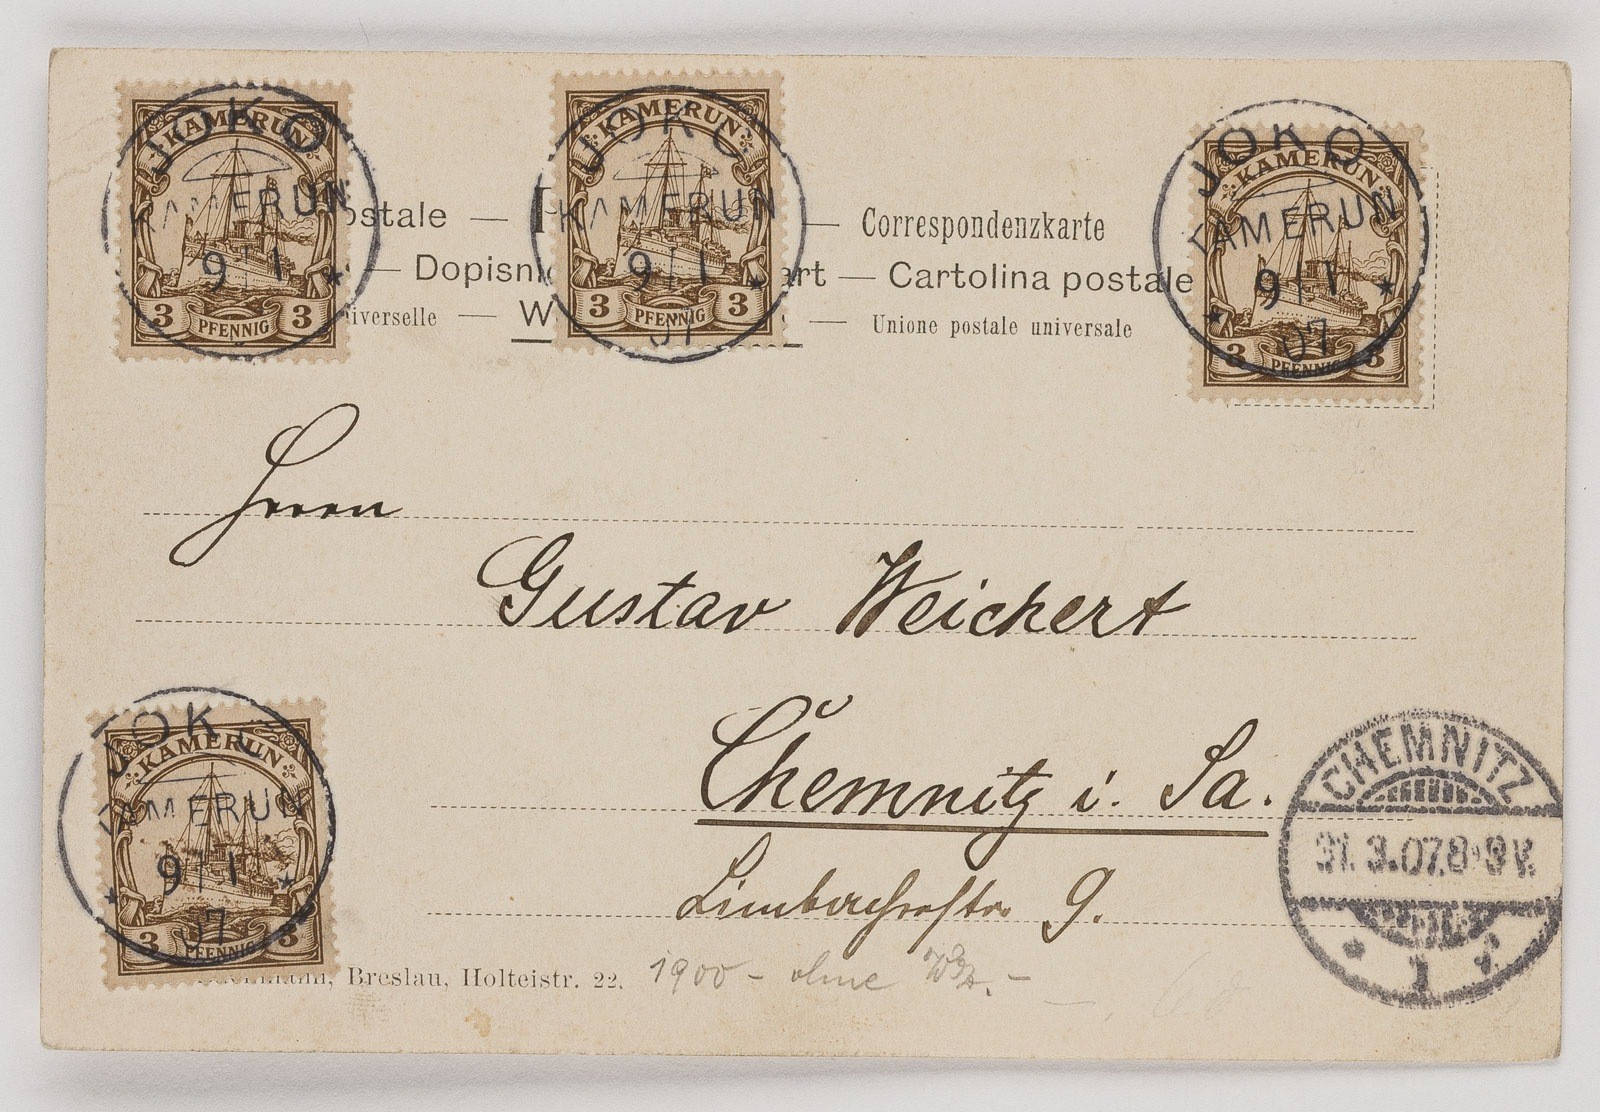 KAMERUN
3 PFENNIG 3
JOKO
KAMERUN
9/1
KAMERUN
3 PFENNIG 3
JOKO
KAMERUN
9/1
07
KAMERUN
3 PFENNIG 3
JOKO
KAMERUN
9/1
07
ostale — — Correspondenzkarte
— Dopisnic art — Cartolina postale
iverselle — W — Unione postale universale
Herrn
Gustav Weichert
Chemnitz i. Sa.
9.
KAMERUN
3 PFENNIG 3
JOKO
KAMERUN
9/1
07
CHEMNITZ
31.3.07.8-9V.
1
, Breslau, Holteistr. 22.
1900 - ohne Wz. -